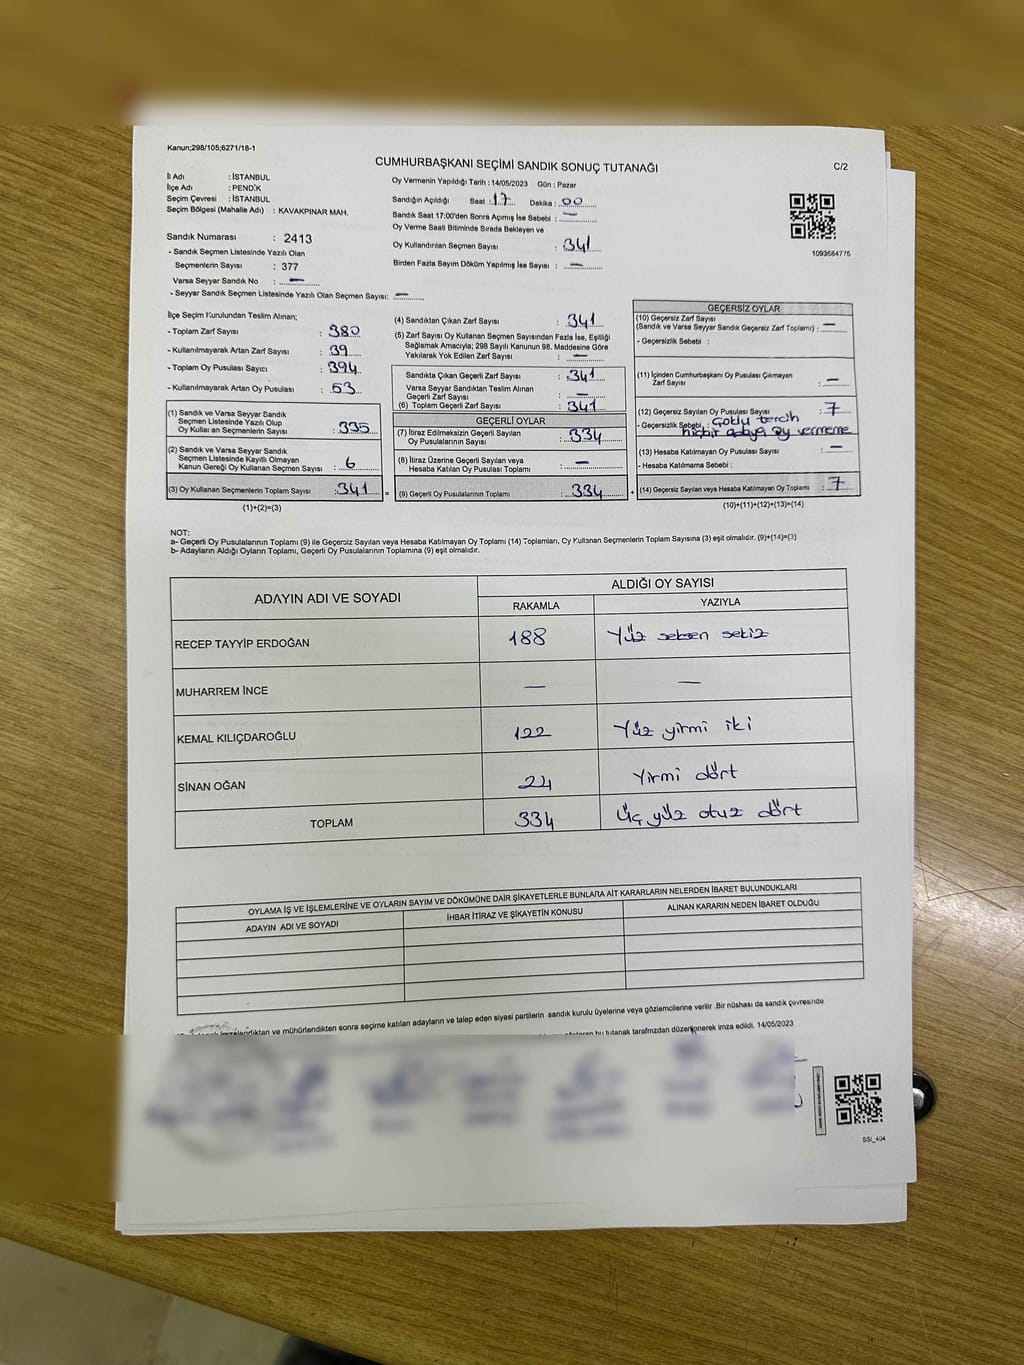 Kanun;298/105;6271/18-1
CUMHURBAŞKANI SEÇİMİ SANDIK SONUÇ TUTANAĞI
C/2
İl Adı : İSTANBUL
İlçe Adı : PENDİK
Seçim Çevresi : İSTANBUL
Seçim Bölgesi (Mahalle Adı) : KAVAKPINAR MAH.
Sandık Numarası : 2413
- Sandık Seçmen Listesinde Yazılı Olan
Seçmenlerin Sayısı : 377
Varsa Seyyar Sandık No : —
- Seyyar Sandık Seçmen Listesinde Yazılı Olan Seçmen Sayısı: —
Oy Vermenin Yapıldığı Tarih : 14/05/2023 Gün : Pazar
Sandığın Açıldığı Saat : 17 Dakika : 00
Sandık Saat 17:00'den Sonra Açımış İse Sebebi : —
Oy Verme Saati Bitiminde Sırada Bekleyen ve
Oy Kullandırılan Seçmen Sayısı : 341
Birden Fazla Sayım Döküm Yapılmış İse Sayısı : —
1093684775
İlçe Seçim Kurulundan Teslim Alınan;
- Toplam Zarf Sayısı : 380
- Kullanılmayarak Artan Zarf Sayısı : 39
- Toplam Oy Pusulası Sayıcı : 394
- Kullanılmayarak Artan Oy Pusulası : 53
(1) Sandık ve Varsa Seyyar Sandık
Seçmen Listesinde Yazılı Olup
Oy Kullanan Seçmenlerin Sayısı : 335
(2) Sandık ve Varsa Seyyar Sandık
Seçmen Listesinde Kayıtlı Olmayan
Kanun Gereği Oy Kullanan Seçmen Sayısı : 6
(3) Oy Kullanan Seçmenlerin Toplam Sayısı : 341 =
(1)+(2)=(3)
(4) Sandıktan Çıkan Zarf Sayısı : 341
(5) Zarf Sayısı Oy Kullanan Seçmen Sayısından Fazla İse, Eşitliği
Sağlamak Amacıyla; 298 Sayılı Kanunun 98. Maddesine Göre
Yakılarak Yok Edilen Zarf Sayısı : —
Sandıkta Çıkan Geçerli Zarf Sayısı : 341
Varsa Seyyar Sandıktan Teslim Alınan
Geçerli Zarf Sayısı : —
(6) Toplam Geçerli Zarf Sayısı : 341
GEÇERLİ OYLAR
(7) İtiraz Edilmeksizin Geçerli Sayılan
Oy Pusulalarının Sayısı : 334
(8) İtiraz Üzerine Geçerli Sayılan veya
Hesaba Katılan Oy Pusulası Toplamı : —
(9) Geçerli Oy Pusulalarının Toplamı : 334 +
GEÇERSİZ OYLAR
(10) Geçersiz Zarf Sayısı
(Sandık ve Varsa Seyyar Sandık Geçersiz Zarf Toplamı) : —
- Geçersizlik Sebebi :
(11) İçinden Cumhurbaşkanı Oy Pusulası Çıkmayan
Zarf Sayısı : —
(12) Geçersiz Sayılan Oy Pusulası Sayısı : 7
- Geçersizlik Sebebi : Çoklu tercih
hiçbir adaya oy vermeme
(13) Hesaba Katılmayan Oy Pusulası Sayısı : —
- Hesaba Katılmama Sebebi :
(14) Geçersiz Sayılan veya Hesaba Katılmayan Oy Toplamı : 7
(10)+(11)+(12)+(13)=(14)
NOT:
a- Geçerli Oy Pusulalarının Toplamı (9) ile Geçersiz Sayılan veya Hesaba Katılmayan Oy Toplamı (14) Toplamları, Oy Kullanan Seçmenlerin Toplam Sayısına (3) eşit olmalıdır. (9)+(14)=(3)
b- Adayların Aldığı Oyların Toplamı, Geçerli Oy Pusulalarının Toplamına (9) eşit olmalıdır.
ADAYIN ADI VE SOYADI
ALDIĞI OY SAYISI
RAKAMLA YAZIYLA
RECEP TAYYİP ERDOĞAN 188 Yüz seksen sekiz
MUHARREM İNCE — —
KEMAL KILIÇDAROĞLU 122 Yüz yirmi iki
SİNAN OĞAN 24 Yirmi dört
TOPLAM 334 Üç yüz otuz dört
OYLAMA İŞ VE İŞLEMLERİNE VE OYLARIN SAYIM VE DÖKÜMÜNE DAİR ŞİKAYETLERLE BUNLARA AİT KARARLARIN NELERDEN İBARET BULUNDUKLARI
ADAYIN ADI VE SOYADI İHBAR İTİRAZ VE ŞİKAYETİN KONUSU ALINAN KARARIN NEDEN İBARET OLDUĞU
imzalandıktan ve mühürlendikten sonra seçime katılan adayların ve talep eden siyasi partilerin sandık kurulu üyelerine veya gözlemcilerine verilir .Bir nüshası da sandık çevresinde
bu tutanak tarafımızdan düzenlenerek imza edildi. 14/05/2023
SSI_404